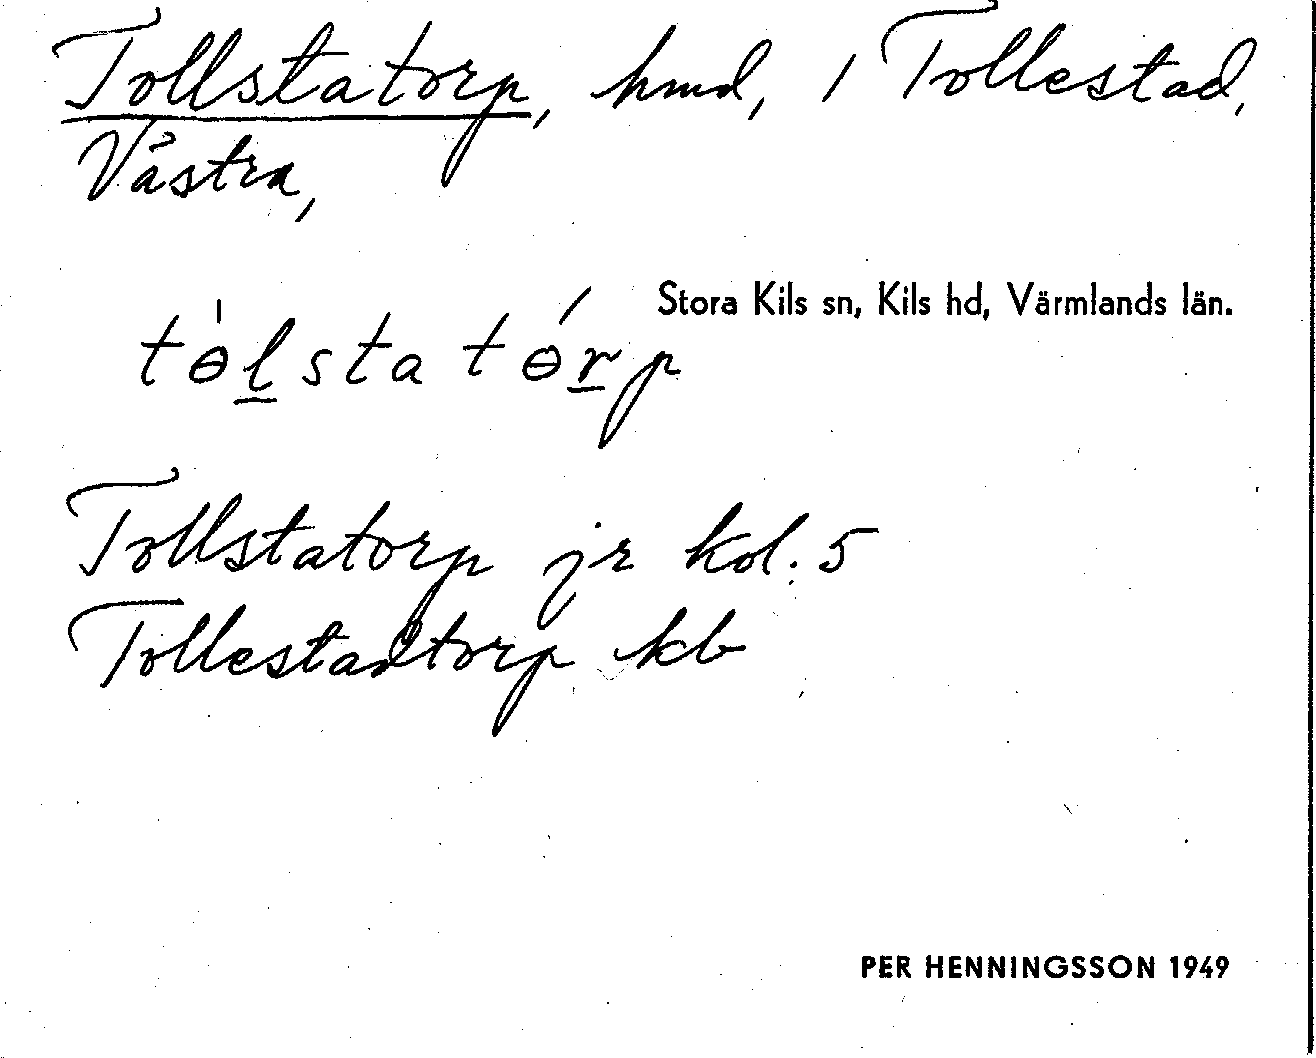 Tollstatorp, hmd, 1 Tollestad,
Västra,
Stora Kils sn, Kils hd, Värmlands län.
tɵ̀l̲sta tɵ́r̲p
Tollstatorp jr kol. 5
Tollestadtorp kb
PER HENNINGSSON 1949